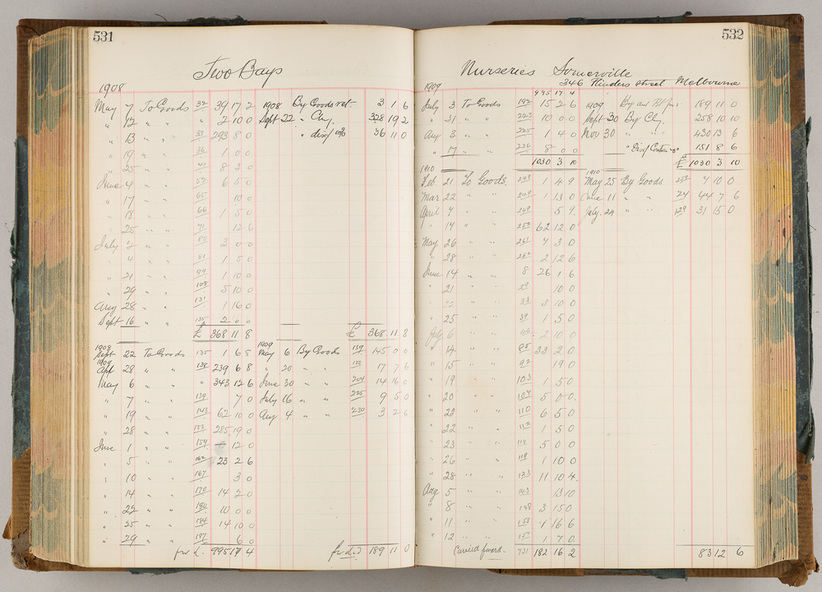 531
Two Bays
1908
May 7 To Goods 32 39 17 2 1908 By Goods ret. 3 1 6
" 12 " " " 2 10 0 Sept 22 " Chq. 328 19 2
" 13 " " 293 8 0 " disct 36 11 0
" 19 " " 1 0 0
" 25 " " 8 2 0
June 4 " " 6 5 0
" 17 " " 10 0
" 18 " " 66 1 5 0
" 25 " " 12 6
July 2 " " 3 0 0
" 4 " " 1 5 0
" 21 " " 1 10 0
" 29 " " 5 10 0
Aug 28 " " 131 1 16 0
Sept 16 " " 2 0 0
£ 368 11 8 £ 368 11 8
1908 1909
Sept 22 To Goods 135 1 6 8 May 6 By Goods 139 145 0 0
1909
Apl 28 " " 138 239 6 8 " 25 " " 17 7 6
May 6 " " " 343 12 6 June 30 " " 204 14 16 0
" 7 " " 139 7 0 July 16 " " 225 9 5 0
" 19 " " 143 62 10 0 Aug 4 " " 230 3 2 6
" 28 " " 285 19 0
June 1 " " 159 12 0
" 5 " " 23 2 6
" 10 " " 167 3 0
" 14 " " 170 14 2 0
" 22 " " 180 10 0 0
" 25 " " 184 14 10 0
" 29 " " 6 0
995 17 4 189 11 0
532
Nurseries Somerville
346 Flinders Street Melbourne
1909 995 17 4
July 3 To Goods 15 2 6 1909 189 11 0
" 31 " " 10 0 0 Sept 30 By Chq. 258 10 10
Aug 3 " " 225 1 4 0 Nov 30 " " 430 13 6
" 17 " " 236 8 0 0 " 151 8 6
1030 3 10 £ 1030 3 10
1910 1910
Feb 21 To Goods 1 4 9 May 25 By Goods 7 10 0
Mar 22 " " 1 13 0 June 11 " " 24 44 7 6
April 7 " " 5 9 July 29 " " 129 31 15 0
" 19 " " 62 12 0
May 26 " " 7 3 0
" 28 " " 2 12 6
June 14 " " 8 26 1 6
" 21 " " 10 0
" " " 3 10 0
" 25 " " 1 5 0
July 6 " " 2 10 0
" 14 " " 85 33 2 0
" 15 " " 93 19 0
" 19 " " 103 1 5 0
" 20 " " 104 5 0 0
" " " 110 6 5 0
" 22 " " 1 5 0
" 23 " " 5 0 0
" 26 " " 1 10 0
" 28 " " 123 11 10 4
Aug 5 " " 13 10
" 8 " " 3 15 0
" 11 " " 1 16 6
" 12 " " 1 7 0
Carried forward. 182 16 2 83 12 6